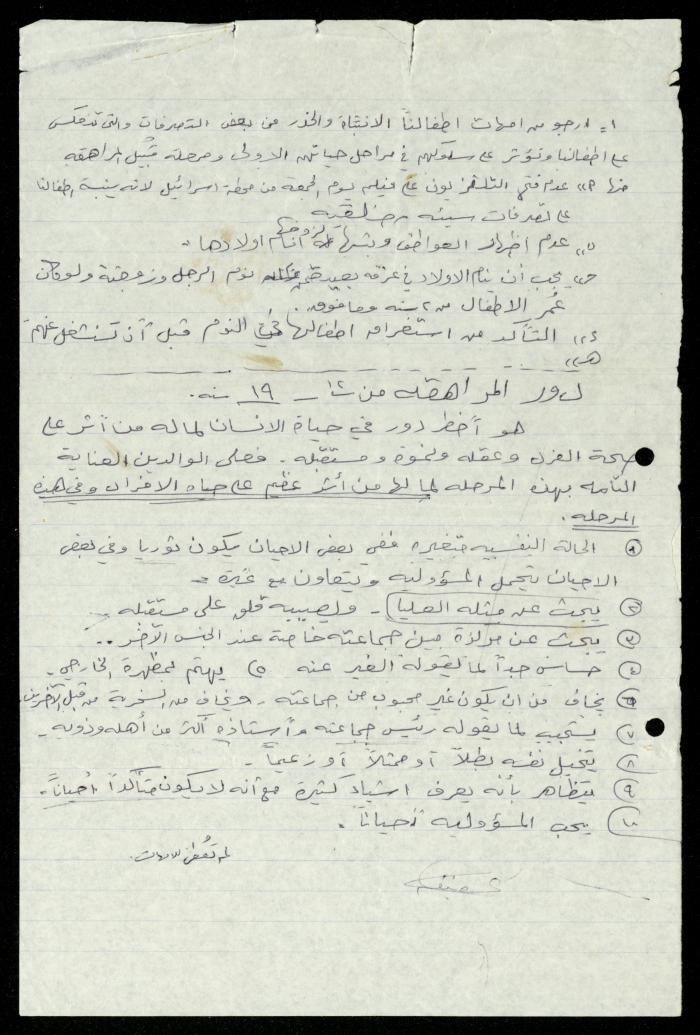 ١ = ارجو من امهات اطفالنا الانتباة والحذر من بعض التصرفات والتي تنعكس
على اطفالنا وتؤثر على سلوكهم في مراحل حياتهم الاولى ومرحلة قبيل المراهقه
منها "٩" عدم فتح التلفزيون على فيلم يوم الجمعة من محطة اسرائيل لانه ينبه اطفالنا
على تصرفات سيئه
"ب" عدم اظهار العواطف لزوجها أمام اولادها"
"ج" يجب أن ينام الاولاد في غرفه بعيدة عن نوم الرجل وزوجته ولو كان
عُمر الاطفال من ٢ سنه وما فوق.
"د" التأكد من استغراق اطفالها في النوم قبل أن تنشغل عنهم
"هـ"
دور المراهقه من ١٢ - ١٩ سنه.
هو أخطر دور في حياة الانسان لما له من أثر على
صحة الفرد وعقله ونموة ومستقبله. فعلى الوالدين العناية
التامه بهذة المرحله لما لها من أثر عظيم على حياه الافراد وفي هذة
المرحله.
١ الحالة النفسيه متغيره ففي بعض الاحيان يكون ثوريا وفي بعض
الاحيان يتحمل المسؤوليه ويتعاون مع غيره
٢ يبحث عن مثله العليا - ويصيبه قلق على مستقبله
٣ يبحث عن مركزة بين جماعته خاصة عند الجنس الآخر..
٤ حساس جداً لما يقوله الغير عنه ٥ يهتم بمظهرة الخارجي.
٦ يخاف من ان يكون غير محبوب من جماعته - ويخاف من السخرية من قبل الآخرين.
٧ يستجيب لما يقوله رئيس جماعته وأستاذه أكثر من أهله وذويه.
٨ يتخيل نفسه بطلاً أو ممثلاً أو زعيماً.
٩ يتظاهر بأنه يعرف اشياء كثيرة مع أنه لا يكون متأكداً أحياناً.
١٠ يحب المسؤوليه أحياناً.
لم تُعطى للامهات.